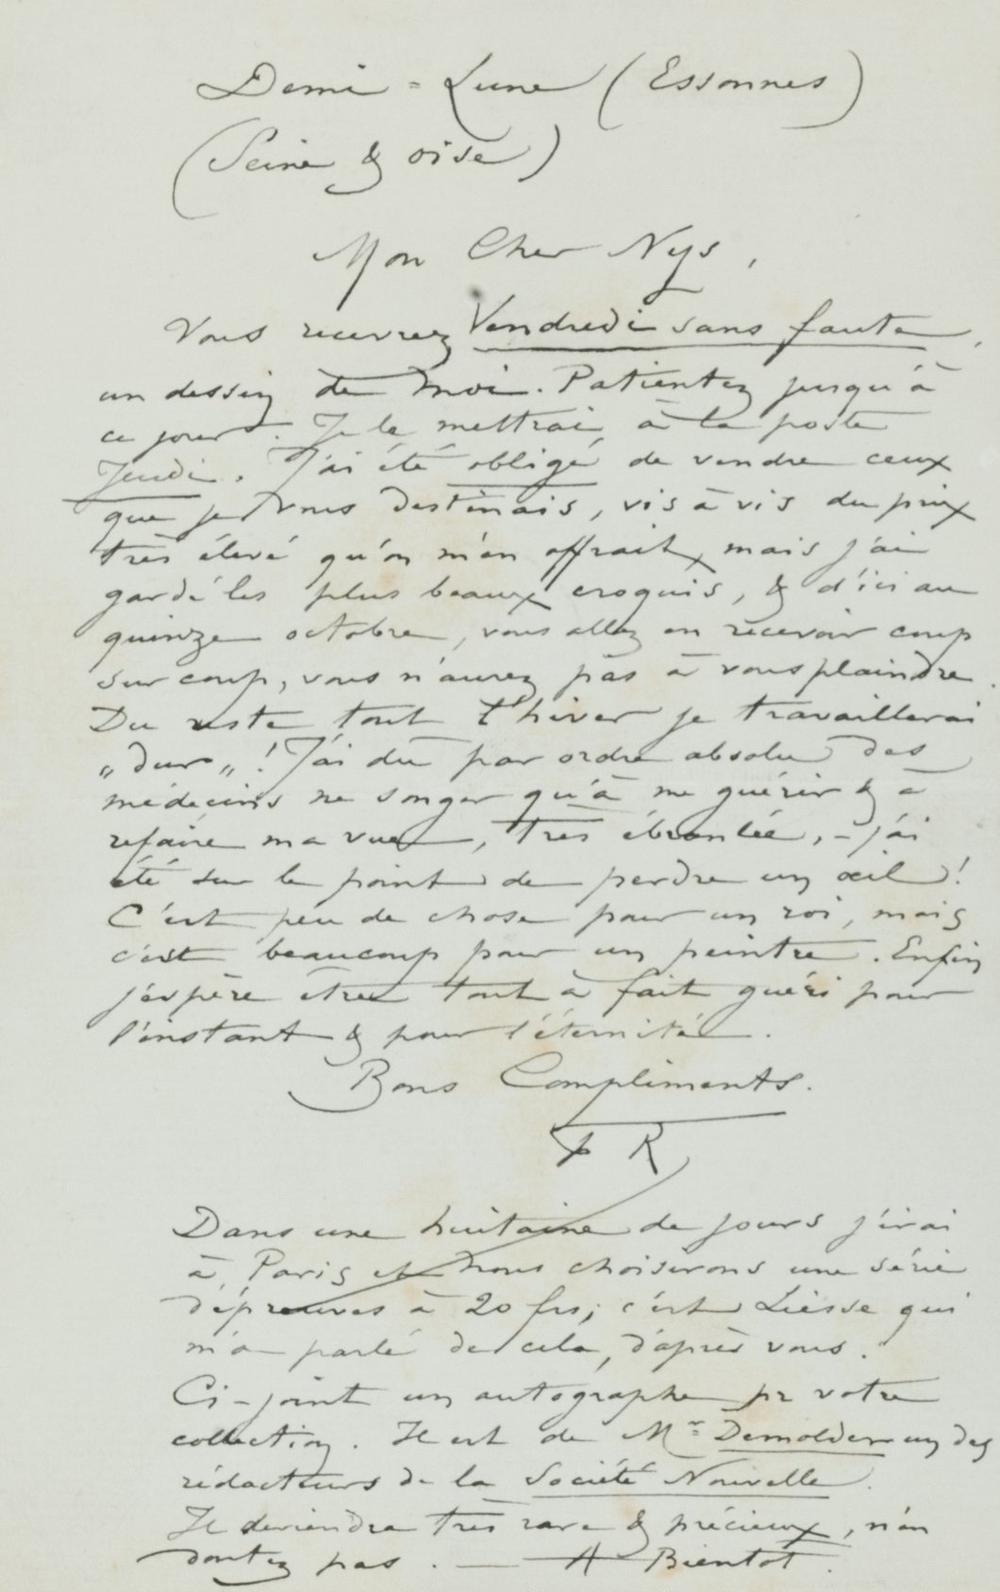 Demi-Lune (Essonnes)
(Seine & oise)
Mon Cher Nys,
Vous recevrez Vendredi sans faute,
un dessin de moi. Patientez jusqu'à
ce jour. Je le mettrai à la poste
Jeudi. J'ai été obligé de vendre ceux
que je vous destinais, vis à vis du prix
très élevé qu'on m'en offrait, mais j'ai
gardé les plus beaux croquis, & d'ici au
quinze octobre, vous allez en recevoir coup
sur coup, vous n'aurez pas à vous plaindre.
Du reste tout l'hiver je travaillerai
„dur„! J'ai dû par ordre absolu des
médecins ne songer qu'à me guérir & à
refaire ma vue, très ébranlée, - j'ai
été sur le point de perdre un œil!
C'est peu de chose pour un roi, mais
c'est beaucoup pour un peintre. Enfin
j'espère être tout à fait guéri pour
l'instant & pour l'éternité.
Bons Compliments.
F R
Dans une huitaine de jours j'irai
à Paris et nous choisirons une série
d'épreuves à 20 frs; c'est Liesse qui
m'a parlé de cela, d'après vous.
Ci-joint un autographe pr votre
collection. Il est de Mr Demolder un des
rédacteurs de la Société Nouvelle.
Il deviendra très rare & précieux, n'en
doutez pas. — A Bientot.